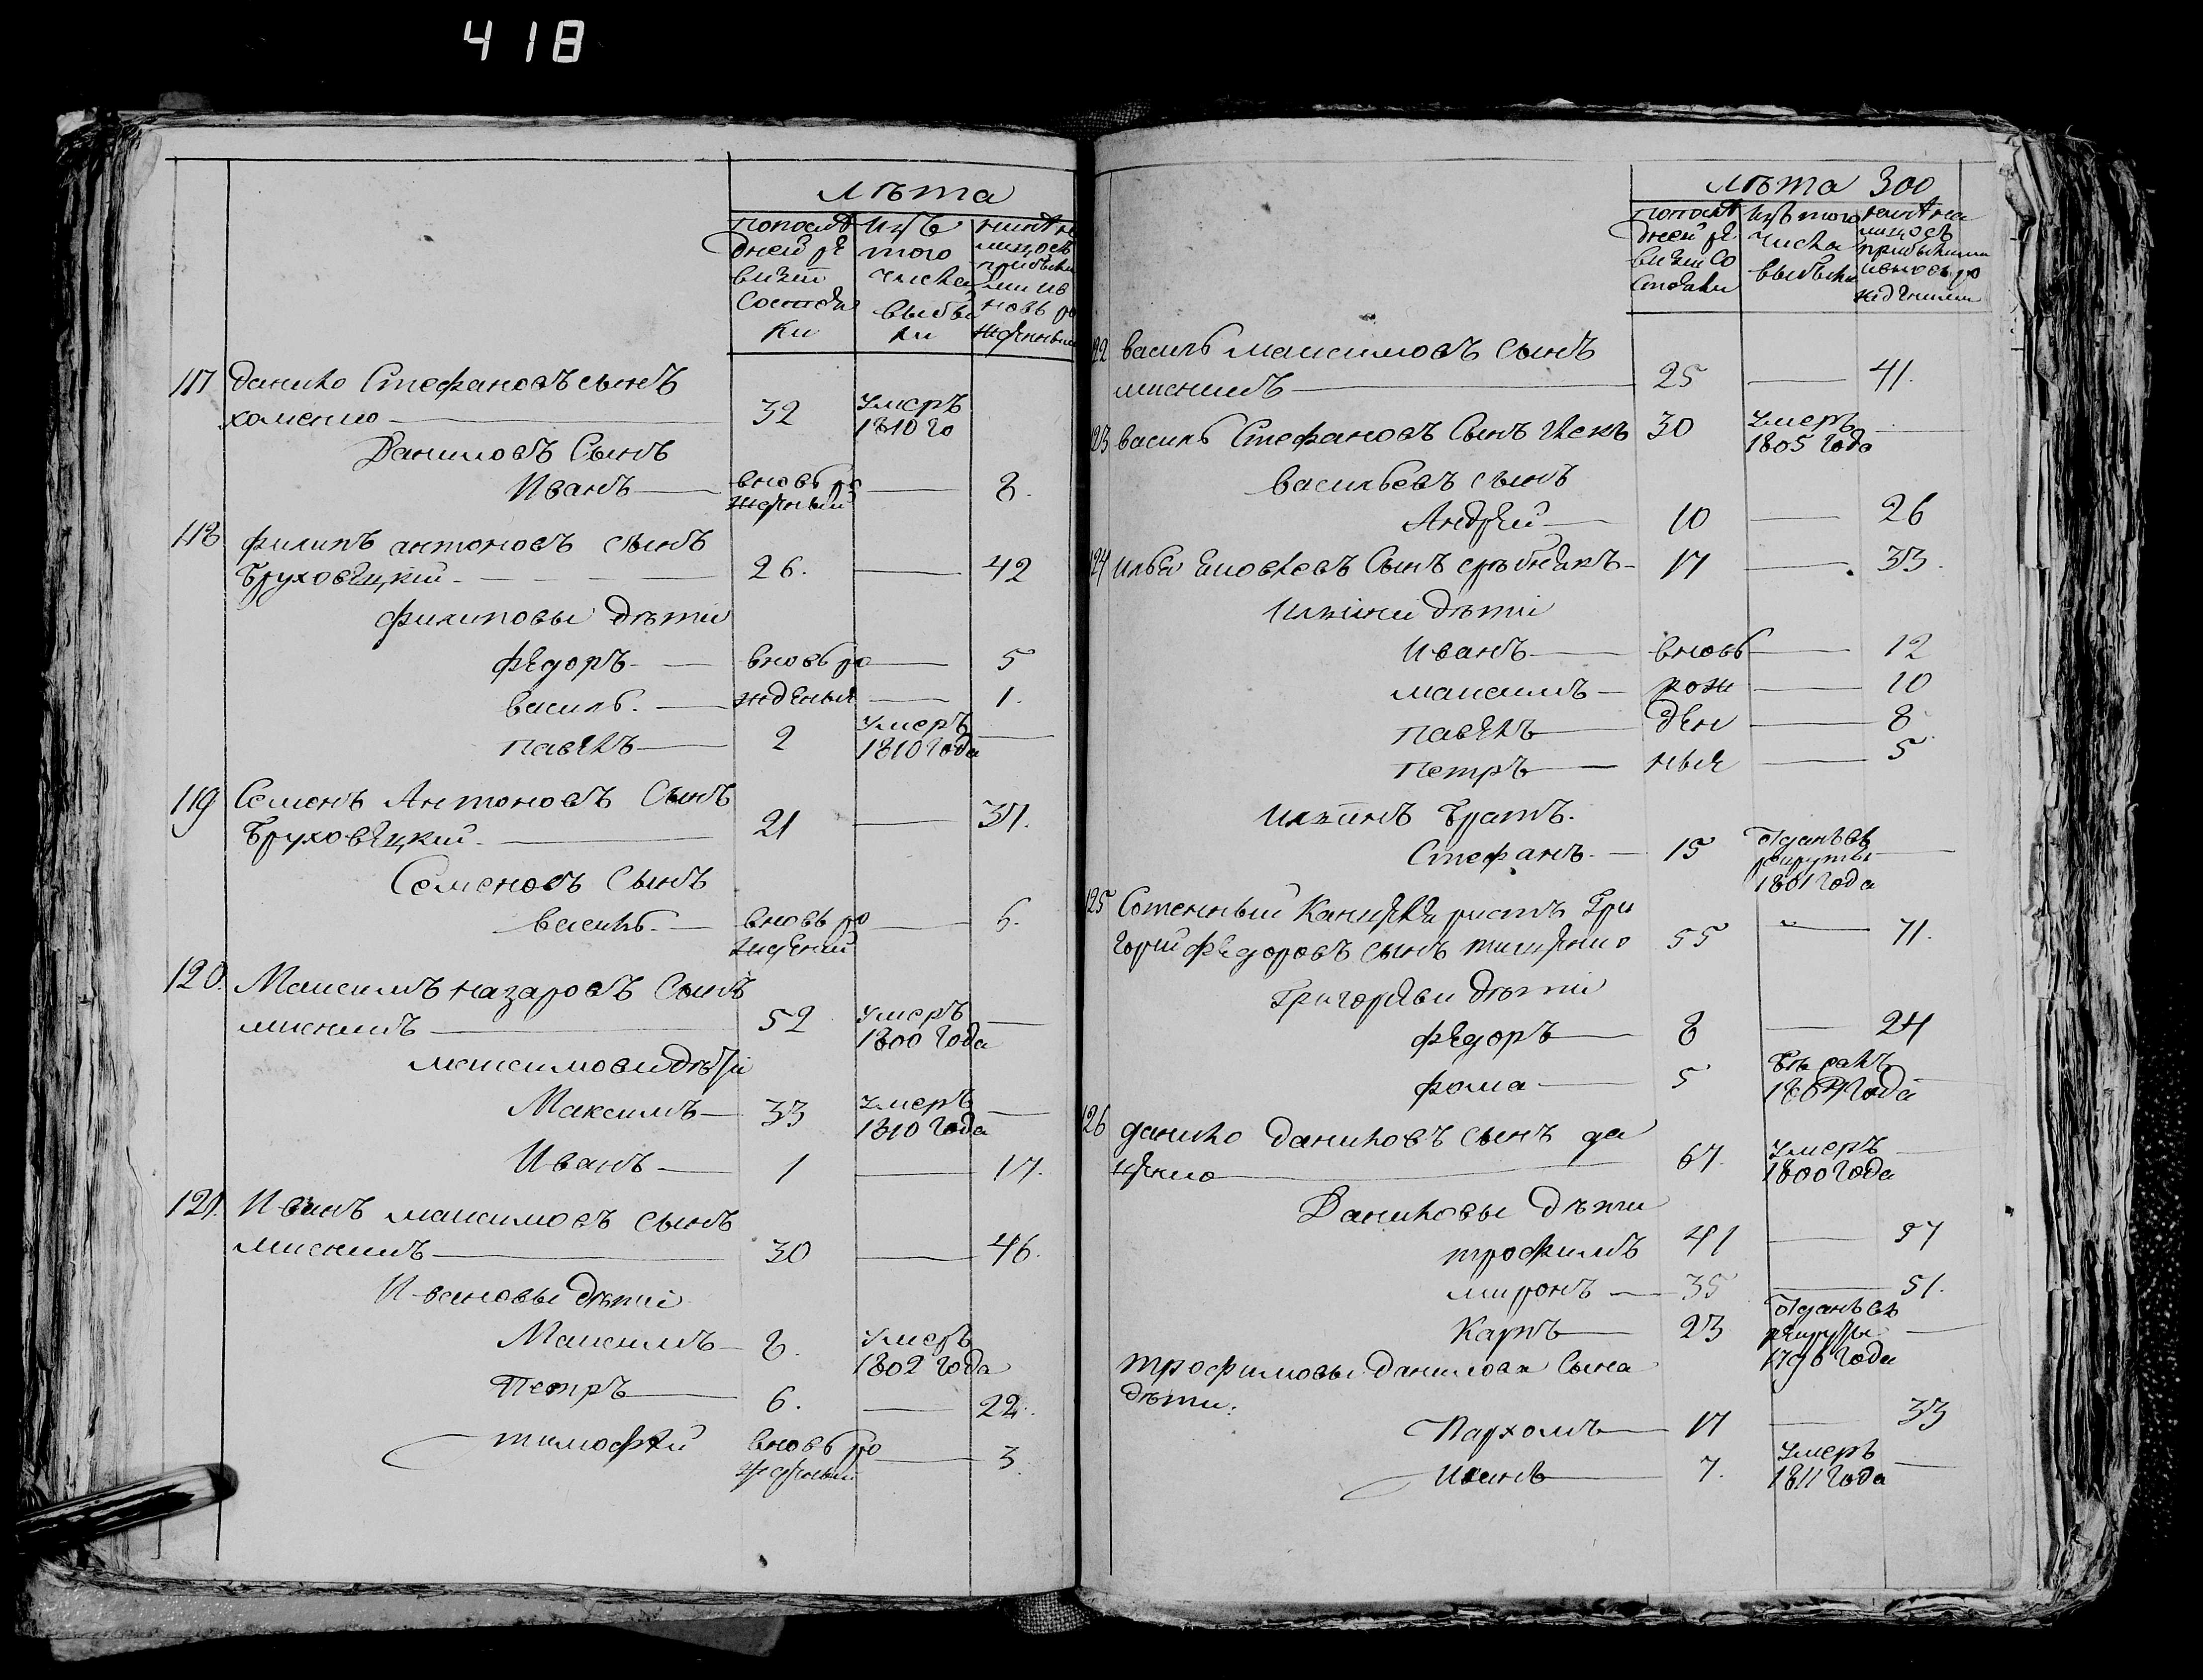 418
лѣта
попослѣ изъ ннѣ на
дней ре того лицо съ
визіи числа прибылы
состоя выбы ми и в
ли ли новь ро
жденным
117 данило Стефановъ сынъ
хоменко 32 умеръ
1810 го
Даниловъ Сынъ
Иванъ вновь ро 8.
жденый
118 филипъ антоновъ сынъ
Бруховецкий 26. 42
филиповы дѣти
федоръ вновь ро 5
василь. жденыя 1.
павелъ 2 умеръ
1810 года
119 Семенъ Антоновъ Сынъ
Бруховецкий 21 37.
Семеновъ Сынъ
василь. вновь ро 6.
жденый
120. Максимъ назаровъ Сынъ
52 умеръ
1800 года
максимови дѣти
Максимъ 33 умеръ
1810 года
Иванъ 1 17.
121. Иванъ максимовъ сынъ
30 46.
Ивановы дѣти
Максимъ 8. умеръ
1802 года
Петръ 6. 22.
тимофей вновь ро 3.
жденый
лѣта 300
попослѣ изъ того ннѣ на
дней ре числа лицо съ
визіи со выбыли прибылыми
стояли и вновь ро
жденными
122 василь максимовъ сынъ
25 41.
123 василь Стефановъ Сынъ 30 умеръ
1805 года
васильевъ сынъ
Андрей 10 26
124 илья яковлевъ Сынъ 17 33.
илкины дѣти
иванъ вновь 12
максимъ рож 10
павелъ ден 8
петръ ныя 5
илкинъ братъ.
Стефанъ. 15 отданъ въ
рекруты
1801 года
125 Сотенный Канцеляристъ Гри
горий федоровъ сынъ тищенко 55 71.
григоревы дѣти
федоръ 8 24
фома 5 бѣжалъ
1804 года
126 данило даниловъ сынъ да
ценко 67. умеръ
1800 года
Даниловы дѣти
трофимъ 41 57
миронъ 35 51.
Карпъ 23 отданъ въ
рекруты
1796 года
трофимовы данилова сына
дѣти:
Пархомъ 17 33
иванъ 7. умеръ
1811 года